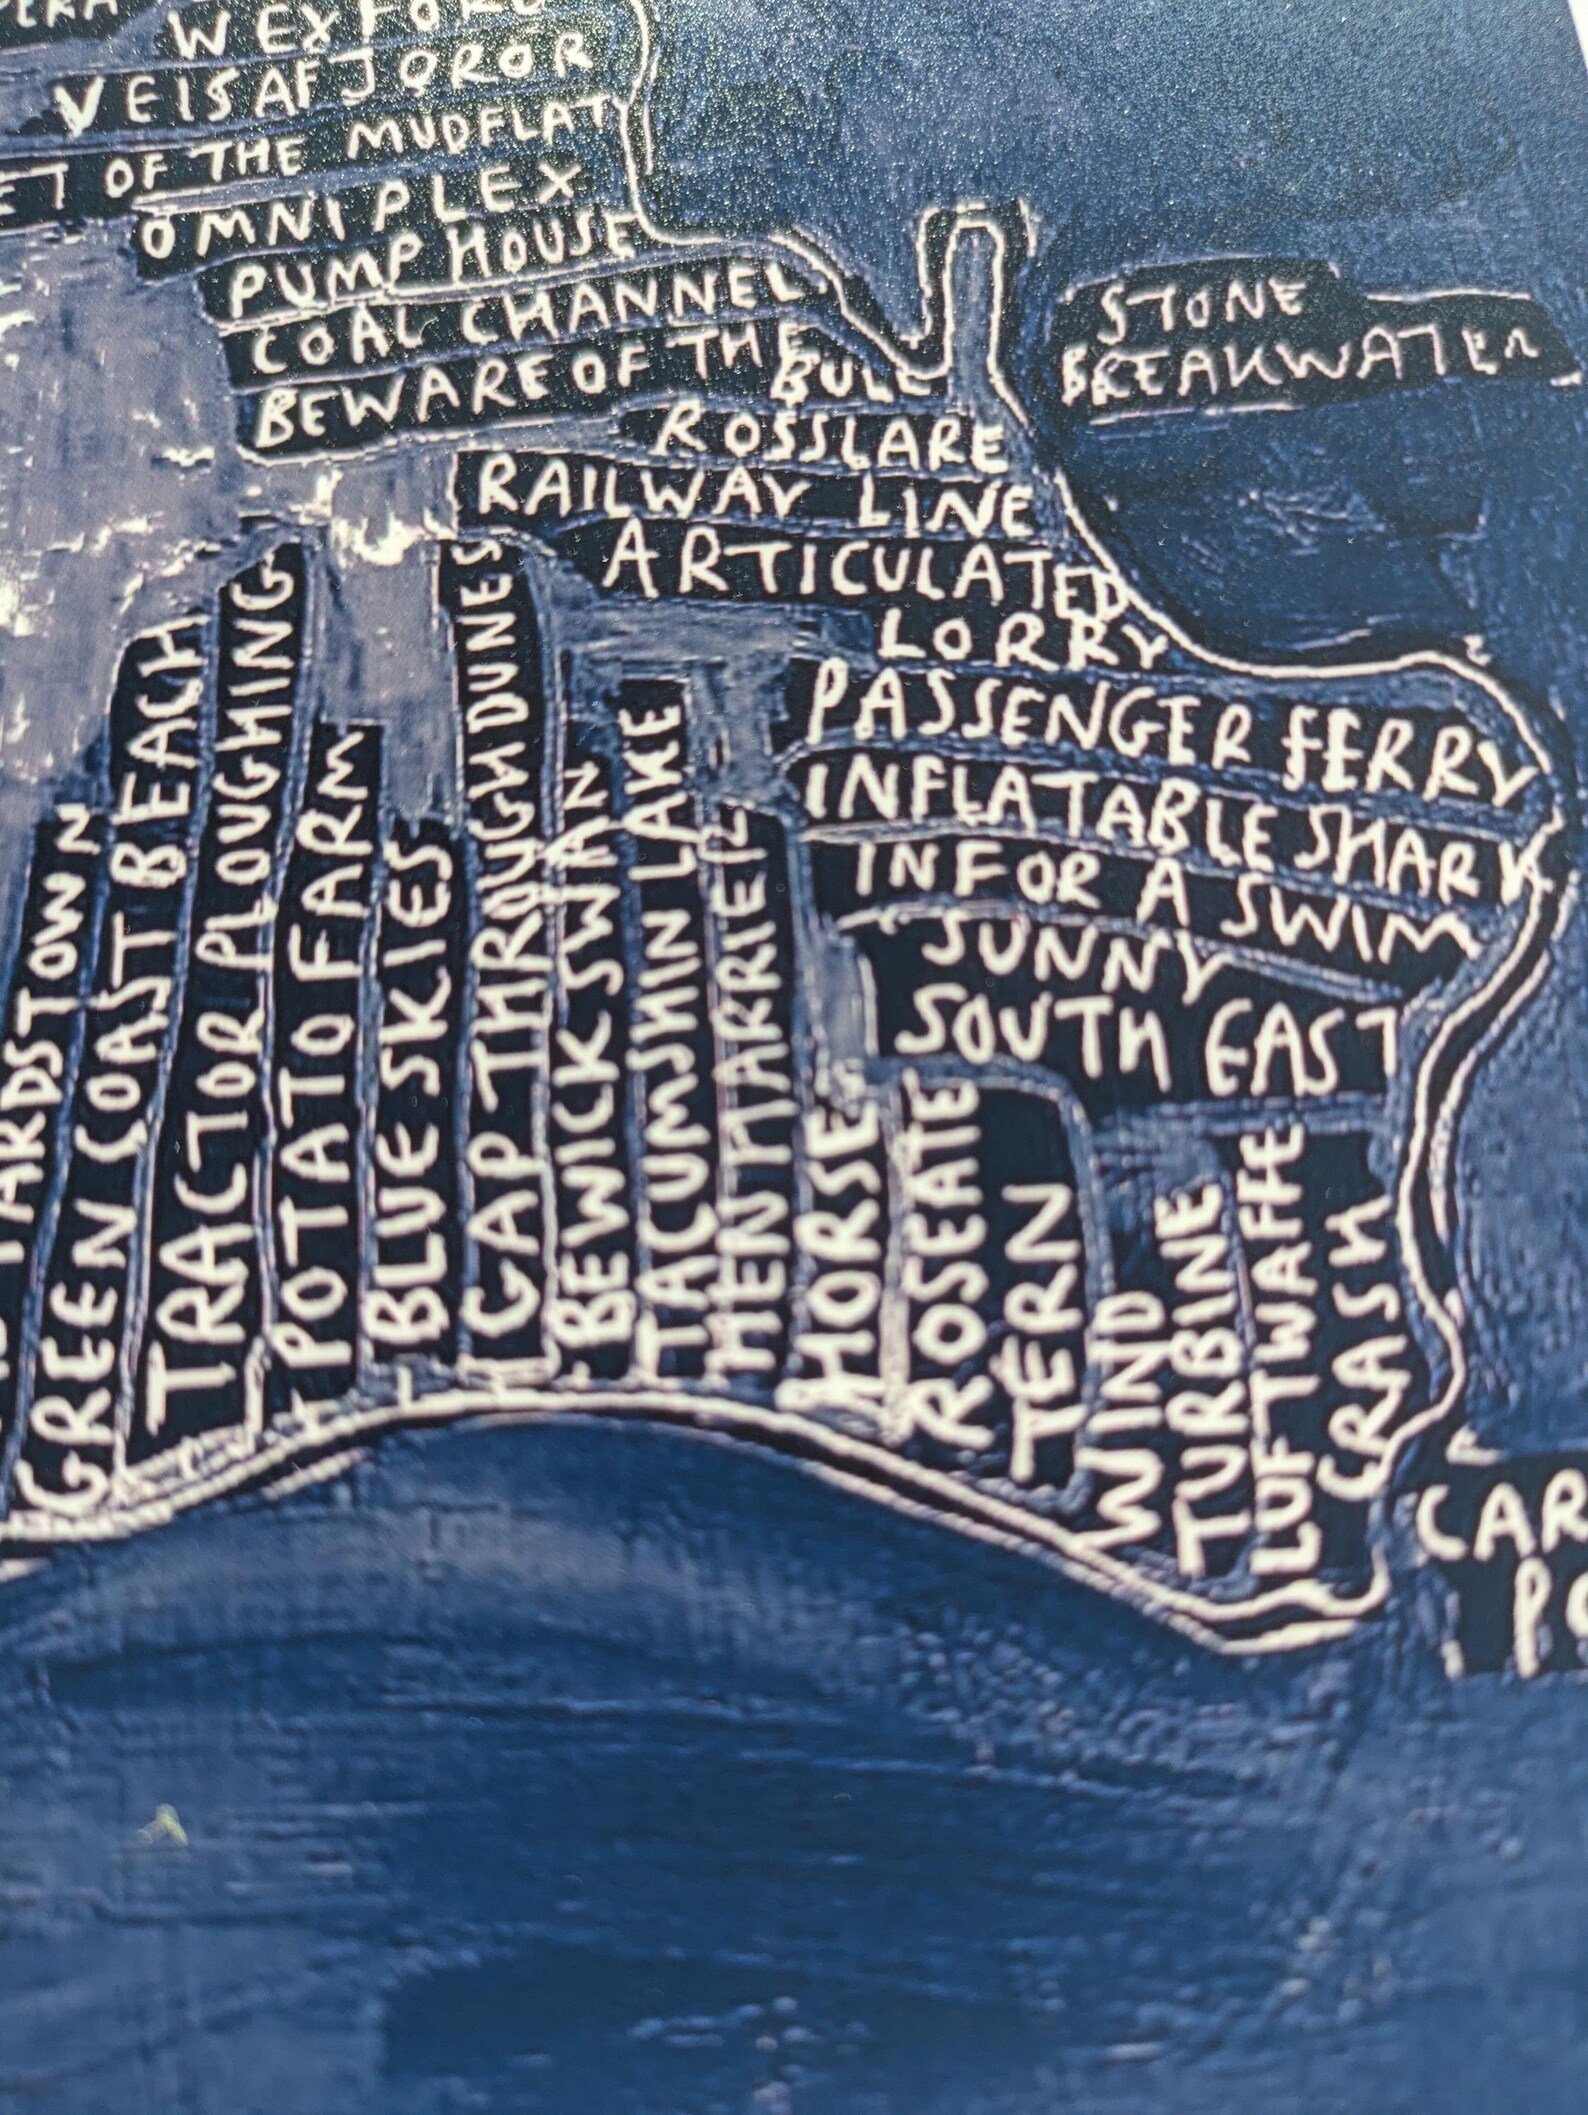 WEXFORD
VEISAFJOROR
OF THE MUDFLAT
OMNIPLEX
PUMP HOUSE
COAL CHANNEL
BEWARE OF THE
BULL
STONE
BREAKWATER
ROSSLARE
RAILWAY LINE
ARTICULATED
LORRY
PASSENGER FERRY
INFLATABLE SHARK
IN FOR A SWIM
SUNNY
SOUTH EAST
GREEN COAST BEACH
TRACTOR PLOUGHING
POTATO FARM
BLUE SKIES
GAP THROUGH DUNES
BEWICK SWAN
TACUMSHIN LAKE
HEN HARRIER
HORSE
ROSEATE
TERN
WIND
TURBINE
LUFTWAFFE
CRASH
CAR